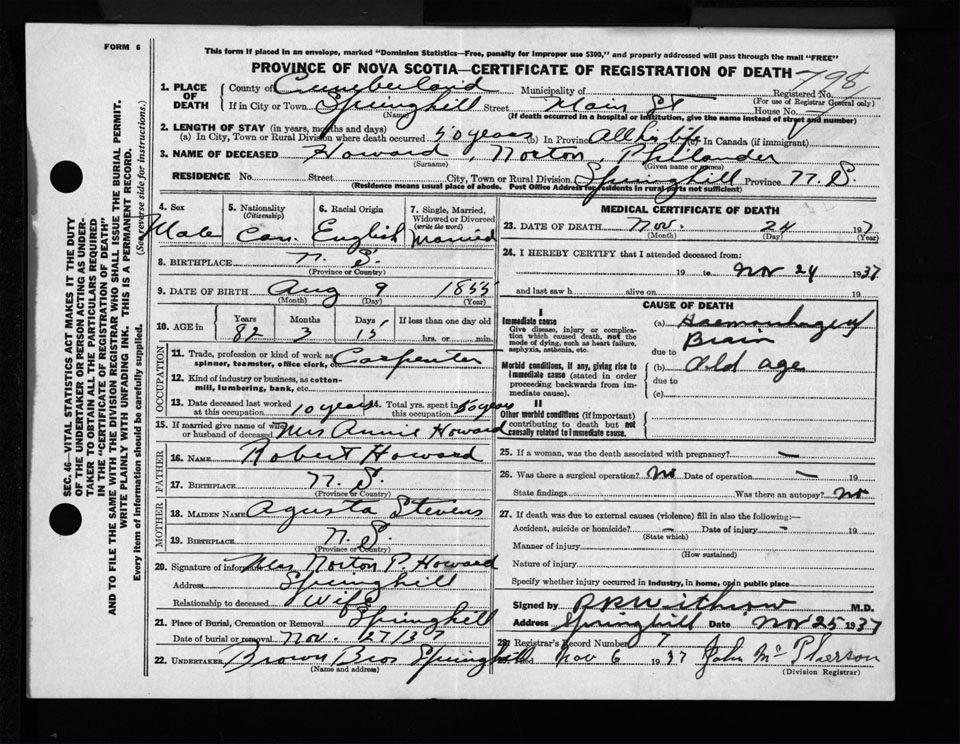 FORM 6
This form if placed in an envelope, marked "Dominion Statistics—Free, penalty for improper use $300," and properly addressed will pass through the mail "FREE"
PROVINCE OF NOVA SCOTIA—CERTIFICATE OF REGISTRATION OF DEATH 798
1. PLACE OF DEATH
County of Cumberland Municipality of Registered No.
(For use of Registrar General only)
If in City or Town Springhill Street Main St House No.
(Name) (If death occurred in a hospital or institution, give the name instead of street and number)
2. LENGTH OF STAY (in years, months and days)
(a) In City, Town or Rural Division where death occurred 50 years (b) In Province All his life (c) In Canada (if immigrant)
3. NAME OF DECEASED Howard, Norton, Philander
(Surname) (Given name or names)
RESIDENCE No. Street City, Town or Rural Division Springhill Province N. S.
(Residence means usual place of abode. Post Office Address for residents in rural parts not sufficient)
4. Sex Male
5. Nationality (Citizenship) Can.
6. Racial Origin English
7. Single, Married, Widowed or Divorced (write the word) Married
8. BIRTHPLACE N. S.
(Province or Country)
9. DATE OF BIRTH Aug 9 1855
(Month) (Day) (Year)
10. AGE in Years 82 Months 3 Days 15 If less than one day old hrs. or min.
OCCUPATION
11. Trade, profession or kind of work as spinner, teamster, office clerk, etc. Carpenter
12. Kind of industry or business, as cotton-mill, lumbering, bank, etc.
13. Date deceased last worked at this occupation 10 years 14. Total yrs. spent in this occupation 50 years
15. If married give name of wife or husband of deceased Mrs Annie Howard
FATHER
16. NAME Robert Howard
17. BIRTHPLACE N. S.
(Province or Country)
MOTHER
18. MAIDEN NAME Agusta Stevens
19. BIRTHPLACE N. S.
(Province or Country)
20. Signature of informant Mrs Norton P. Howard
Address Springhill
Relationship to deceased Wife
21. Place of Burial, Cremation or Removal Springhill
Date of burial or removal Nov. 27/37
22. UNDERTAKER Brown Bros Springhill
(Name and address)
MEDICAL CERTIFICATE OF DEATH
23. DATE OF DEATH Nov. 24 1937
(Month) (Day) (Year)
24. I HEREBY CERTIFY that I attended deceased from:
19 to Nov 24 1937
and last saw h alive on 19
CAUSE OF DEATH
I
Immediate cause
Give disease, injury or complication which caused death, not the mode of dying, such as heart failure, asphyxia, asthenia, etc.
(a) Haemorrhage of Brain
due to
Morbid conditions, if any, giving rise to immediate cause (stated in order proceeding backwards from immediate cause).
(b) Old age
due to
(c)
II
Other morbid conditions (if important) contributing to death but not causally related to immediate cause.
25. If a woman, was the death associated with pregnancy? —
26. Was there a surgical operation? No Date of operation — 19
State findings Was there an autopsy? No
27. If death was due to external causes (violence) fill in also the following:—
Accident, suicide or homicide? — Date of injury — 19
(State which)
Manner of injury
(How sustained)
Nature of injury
Specify whether injury occurred in industry, in home, or in public place
Signed by Withrow M.D.
Address Springhill Date Nov 25 1937
28. Registrar's Record Number 7
Filed Nov 6 1937 John McPherson
(Division Registrar)
SEC. 46—VITAL STATISTICS ACT MAKES IT THE DUTY
OF THE UNDERTAKER OR PERSON ACTING AS UNDER-
TAKER TO OBTAIN ALL THE PARTICULARS REQUIRED
IN THE "CERTIFICATE OF REGISTRATION OF DEATH"
AND TO FILE THE SAME WITH THE DIVISION REGISTRAR WHO SHALL ISSUE THE BURIAL PERMIT.
WRITE PLAINLY WITH UNFADING INK. THIS IS A PERMANENT RECORD.
Every item of information should be carefully supplied. (See reverse side for instructions.)